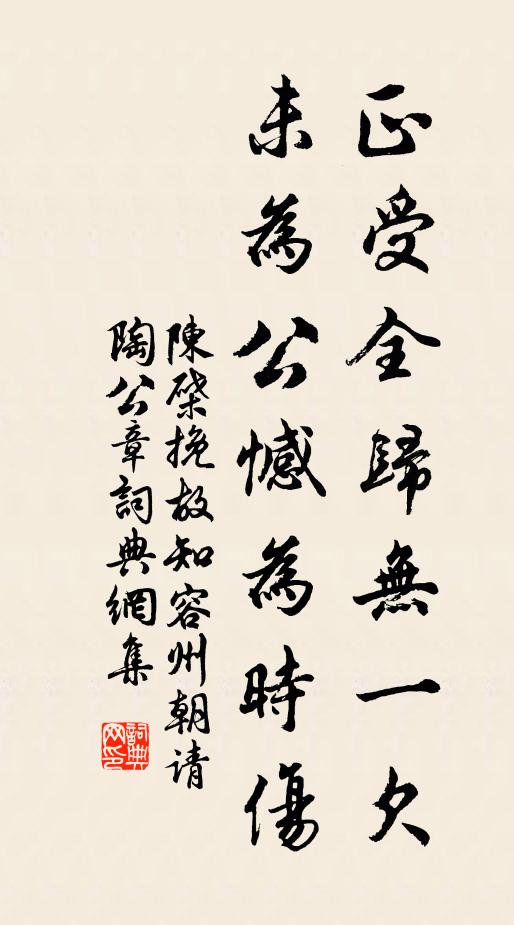 正受全歸無一欠
未為公憾為時傷
陳棨挽故知容州朝请
陶公章詞典網集
詞典网印